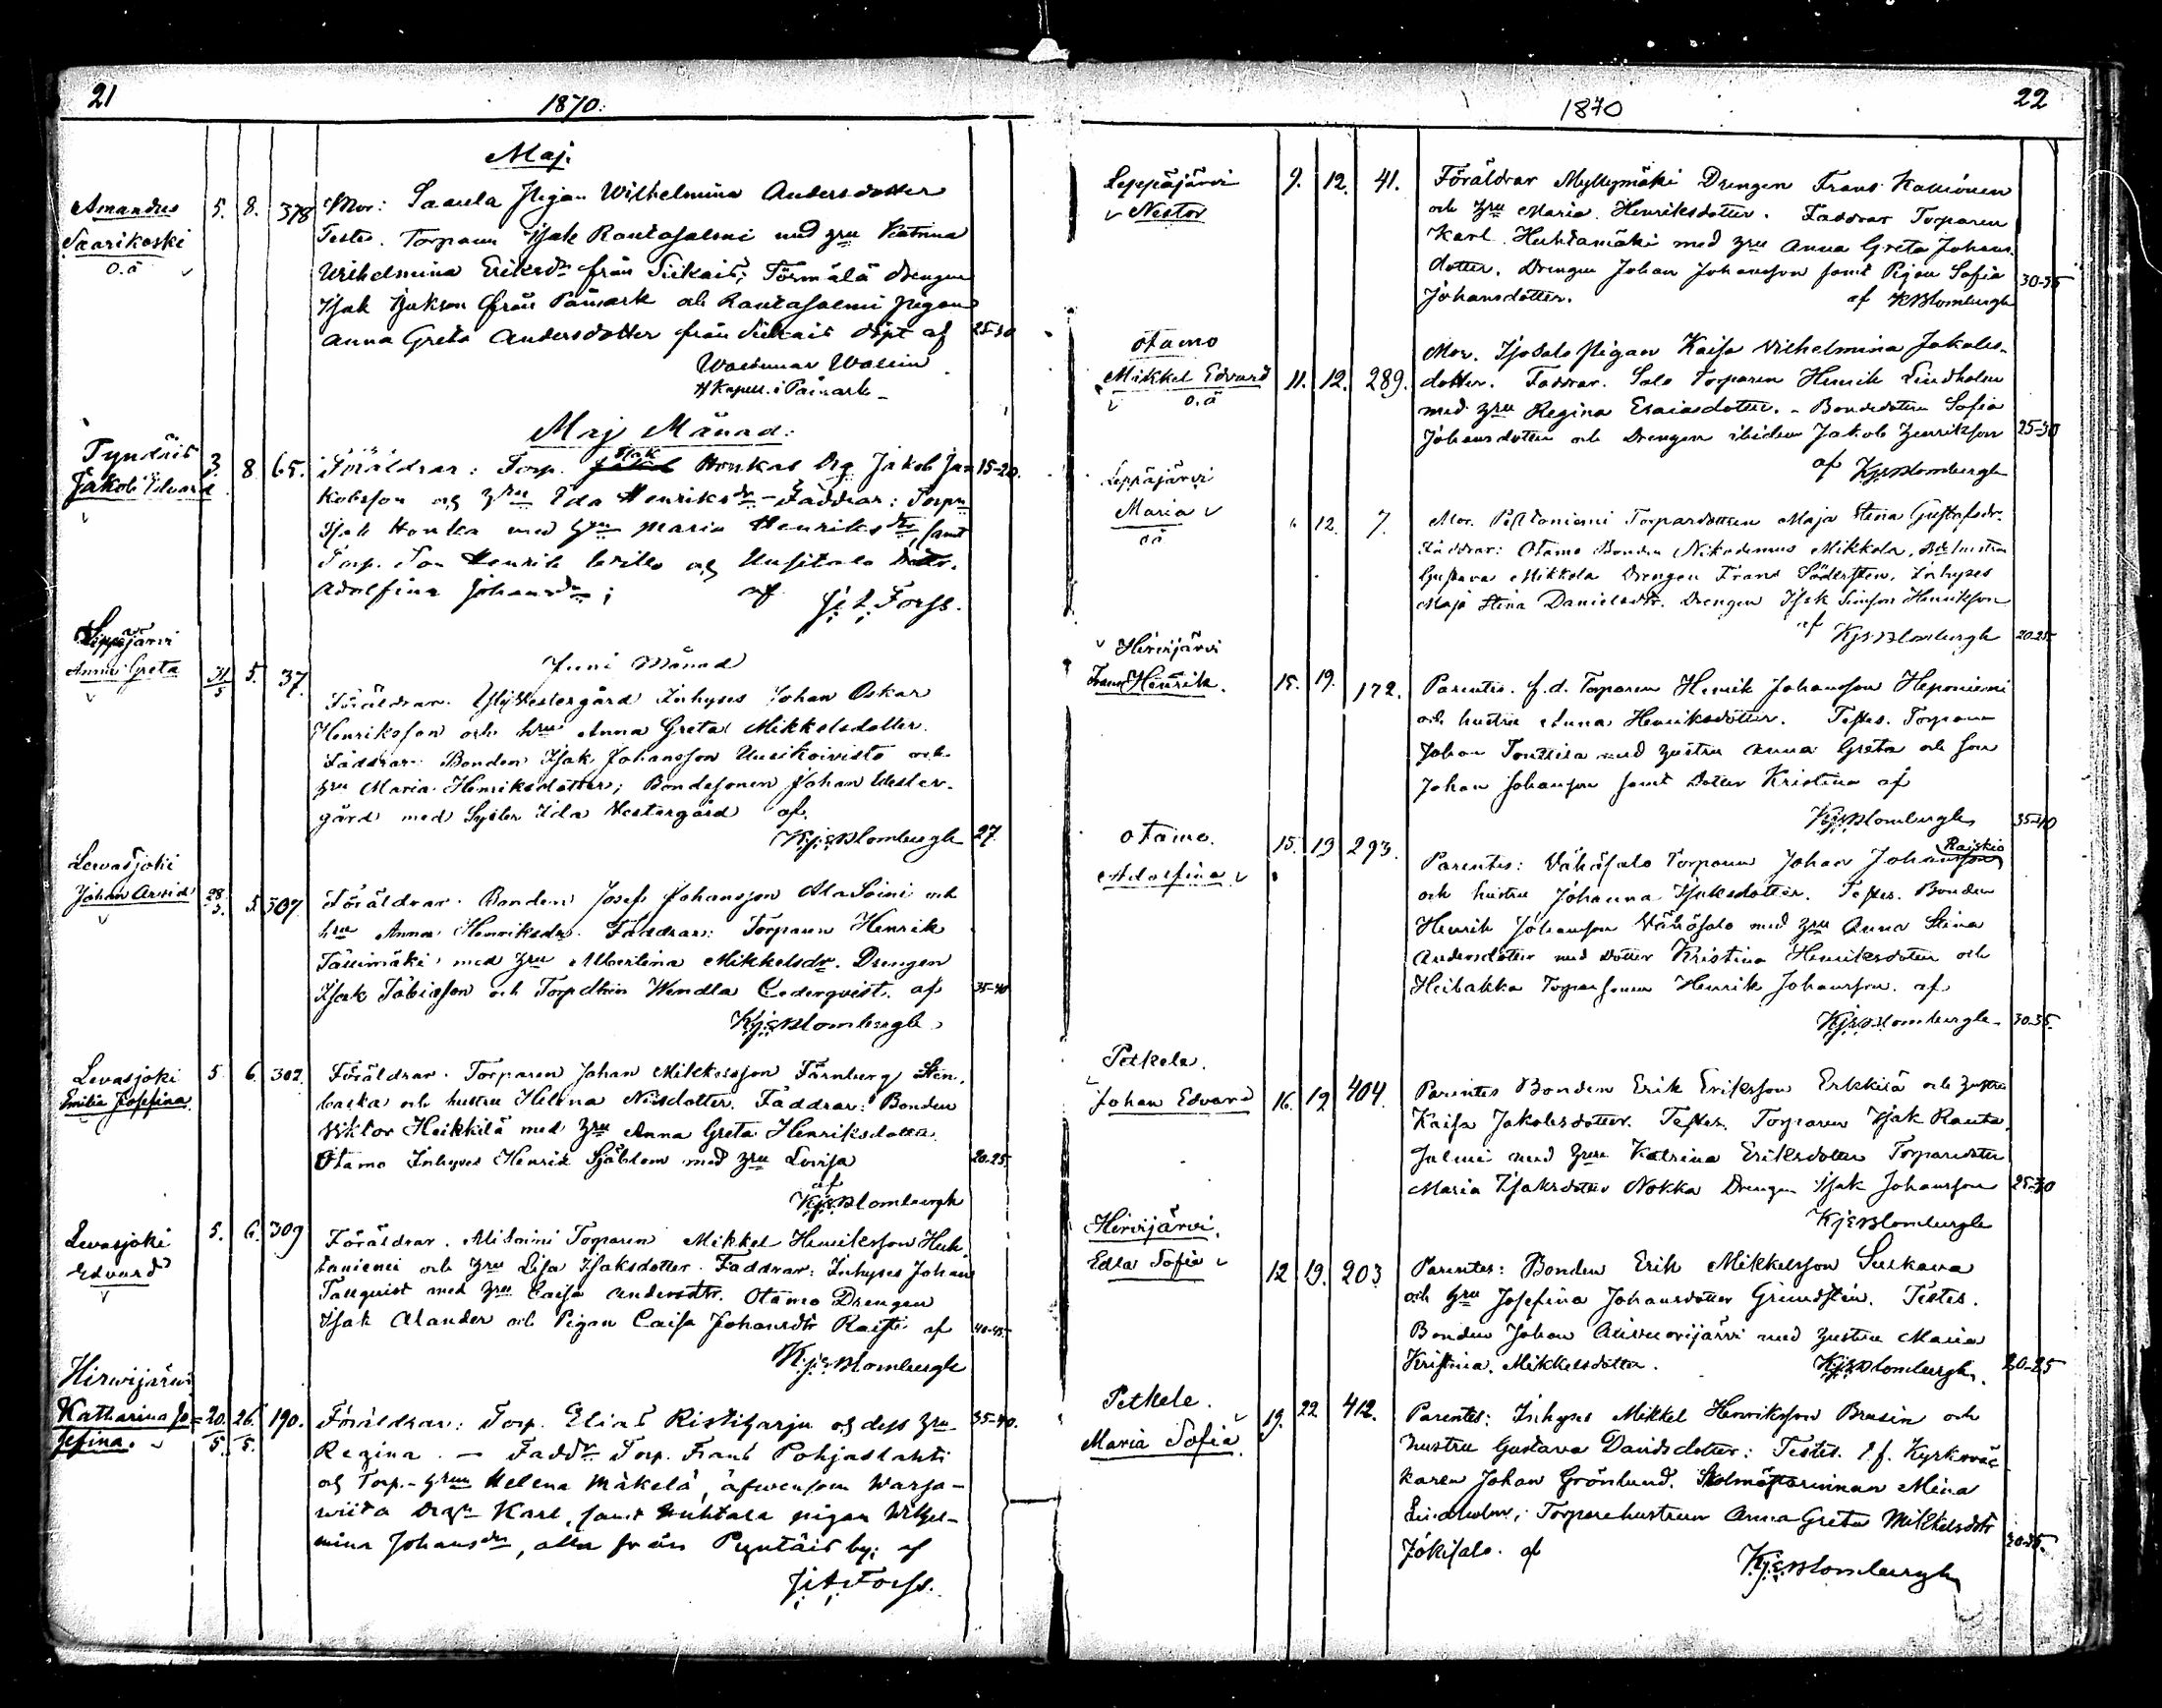 21
1870.
Maj.
Amandus
Saarikoski
o.ä
5. 8. 378
Mor: Saaula Pigan Wilhelmina Andersdotter
Testes. Torparen Isak Rautasalmi med hru Katrina
Wilhelmina Eriksdr från Siikais; Törmälä drengen
Isak Isakson från Påmark och Rautasalmi pigan
Anna Greta Andersdotter från Siikais döpt af
25-30
Waldemar Wallin
Kapell. i Påmark
Maj Månad:
Tyndäis
Jakob Edvard
3. 8 65.
Föräldrar: Torp. Isak Honkas Drg Jakob Ja=
15-20.
kobsson och hru Ida Henriksdr - Faddrar: Torpn
Isak Honka med hru Maria Henriksdtr, samt
Torp. Son Henrik Wille och Uusitalo dottr.
Adolfina Johansdr; af
J. A. Forss.
Leppäjärvi
Anna Greta
31/5 5. 37.
Juni Månad
Föräldrar. Westergård Inhyses Johan Oskar
Henriksson och hru Anna Greta Mikkelsdotter.
Faddrar. Bonden Isak Johansson Uusikoivisto och
hru Maria Henriksdotter; Bondesonen Johan Wester-
gård med Syster Ida Westergård af
KJEBlombergh
27.
Lewasjoki
Johan Arvid
28/5. 5. 307.
Föräldrar. Bonden Josef Johansson AlaSoini och
hru Anna Henriksdr. Faddrar: Torparen Henrik
Tallimäki med hru Albertina Mikkelsdr. Drengen
Isak Tobiasson och Torpdtrn Wendla Cederqvist. af
35-40
KJEBlombergh
Levasjoki
Emilia Josefina
5 6. 302.
Föräldrar. Torparen Johan Mikkelsson Färnberg Sten.
backa och hustru Helena Nilsdotter. Faddrar: Bonden
Viktor Heikkilä med hru Anna Greta Henriksdotter.
Otamo Inhyses Henrik Sjöblom med hru Lovisa
20-25
af
KJEBlombergh
Levasjoki
Edvard
5. 6. 309
Föräldrar. AliSoini Torparen Mikkel Henriksson Huh.
taniemi och hru Lisa Isaksdotter. Faddrar: Inhyses Johan
Tallqvist med hru Caisa Andersdtr. Otamo Drengen
Isak Alander och Pigan Caisa Johansdtr Raisti af
40-45
KJEBlombergh
Hirwijärwi
Katharina Jo=
sefina.
20./5 26./5. 190.
Föräldrar: Torp. Elias Ristiharju och dess hru
35-40.
Regina. — Faddr Torp. Frans Pohjaslahti
och Torp.-hrun Helena Mäkelä, äfvensom Warsa-
wiita Drgn Karl, samt Huhtala pigan Wilhel-
mina Johansdtr, alla från Pyntäis by; af
J. A. Forss.
22
1870
Leppäjärvi
Nestor
9. 12. 41.
Föräldrar Myllymäki Drengen Frans Kallionen
och hru Maria Henriksdotter. Faddrar Torparen
Karl Huhtamäki med hru Anna Greta Johans.
dotter. Drengen Johan Johansson samt Pigan Sofia
30-35
Johansdotter. af KJEBlombergh
Otamo
Mikkel Edvard
o.ä
11. 12. 289.
Mor. Isosalo Pigan Kaisa Vilhelmina Jakobs-
dotter. Faddrar. Salo Torparen Henrik Lindholm
med hru Regina Esaiasdotter. - Bondedottern Sofia
Johansdotter och Drengen ibidem Jakob Henriksson
25-30
af KJEBlombergh
Leppäjärvi
Maria
oä
" 12. 7.
Mor. Peltoniemi Torpardottren Maja Stina Gustafsdr.
Faddrar: Otamo Bonden Nikodemus Mikkola, Bdehustru
Gustava Mikkola Drengen Frans Södersten, Inhyses
Maja Stina Danielsdtr. Drengen Isak Simson Henriksson
af KJEBlombergh
20-25
Hirvijärvi
Frans Henrik.
15. 19. 172.
Parentes. f.d. Torparen Henrik Johansson Heponiemi
och hustru Anna Henriksdotter. Testes. Torparen
Johan Tonttila med hustru Anna Greta och son
Johan Johansson samt dotter Kristina af
KJEBlombergh
35-40
Otamo.
Adolfina
15. 19 293.
Raiskio
Parentes: Vähäsalo Torparen Johan Johansson
och hustru Johanna Isaksdotter. Testes. Bonden
Henrik Johansson Vähäsalo med hru Anna Stina
Andersdotter med dotter Kristina Henriksdotter och
Heilakka Torparsonen Henrik Johansson. af
KJEBlombergh
30-35.
Petkele.
Johan Edvard
16. 19 404.
Parentes Bonden Erik Eriksson Erkkilä och hustru
Kaisa Jakobsdotter. Testes. Torparen Isak Rauta.
salmi med hru Katrina Eriksdotter Torparedotter
Maria Isaksdotter Nokka Drengen Isak Johansson
25-30
KJEBlombergh
Hirvijärvi.
Edla Sofia
12 19. 203
Parentes: Bonden Erik Mikkelsson Surkava
och hru Josefina Johansdotter Grundsten. Testes.
Bonden Johan med hustru Maria
Kristina Mikkelsdotter. KJEBlombergh.
20-25
Petkele.
Maria Sofia
19. 22 412.
Parentes: Inhyses Mikkel Henriksson Brusin och
hustru Gustava Davidsdotter: Testes. t.f. Kyrkoväc
karen Johan Grönlund. Skolmästarinnan Mina
Lindholm; Torparehustrun Anna Greta Mikkelsdotr
30-35.
Jokisalo. af
KJEBlombergh